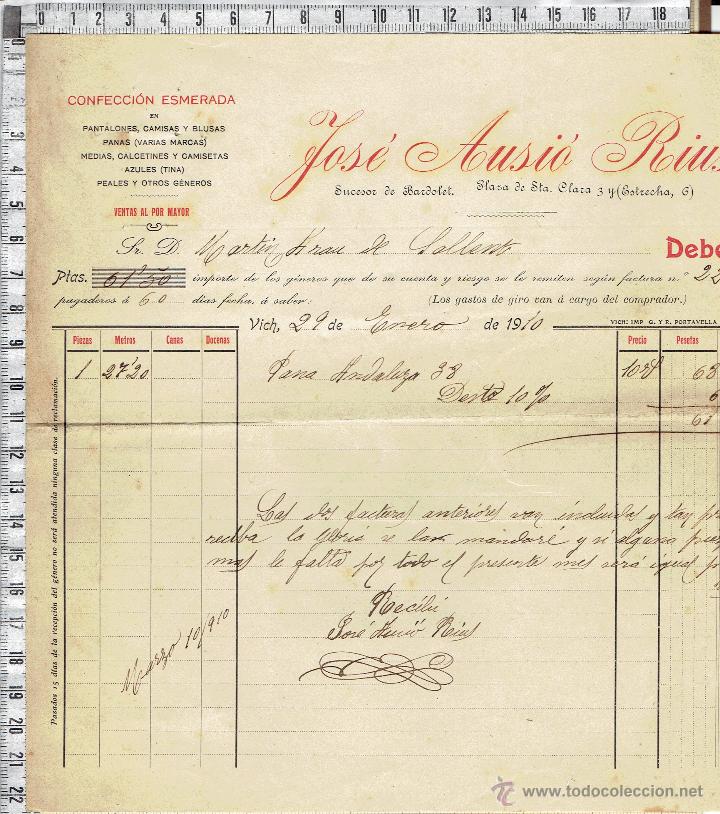 0 1 2 3 4 5 6 7 8 9 10 11 12 13 14 15 16 17 18
CONFECCIÓN ESMERADA
EN
PANTALONES, CAMISAS Y BLUSAS
PANAS (VARIAS MARCAS)
MEDIAS, CALCETINES Y CAMISETAS
AZULES (TINA)
PEALES Y OTROS GÉNEROS
VENTAS AL POR MAYOR
José Ausió Rius
Sucesor de Bardolet. Plaza de Sta. Clara 3 y (Estrecha, 6)
Sr. D. Martin Grau de Sallent Debe
Ptas. 61'50 importe de los géneros que de su cuenta y riesgo se le remiten según factura n.º 22
pagaderos á 60 días fecha, á saber: (Los gastos de giro van á cargo del comprador.)
Vich, 29 de Enero de 1910 VICH: IMP G. Y R. PORTAVELLA
Piezas Metros Canas Docenas Precio Pesetas
1 27'20 Pana Andaluza 33 68
Dento 10% 6
61
Las dos facturas anteriores van incluidas y tan
reciba la se las mandare y si alguna
mas le falta por todo el presente mes será igual
Recibí
José Ausió Rius
Marzo 10/910
Pasados 15 días de la recepción del género no será atendida ninguna clase de reclamación.
www.todocoleccion.net